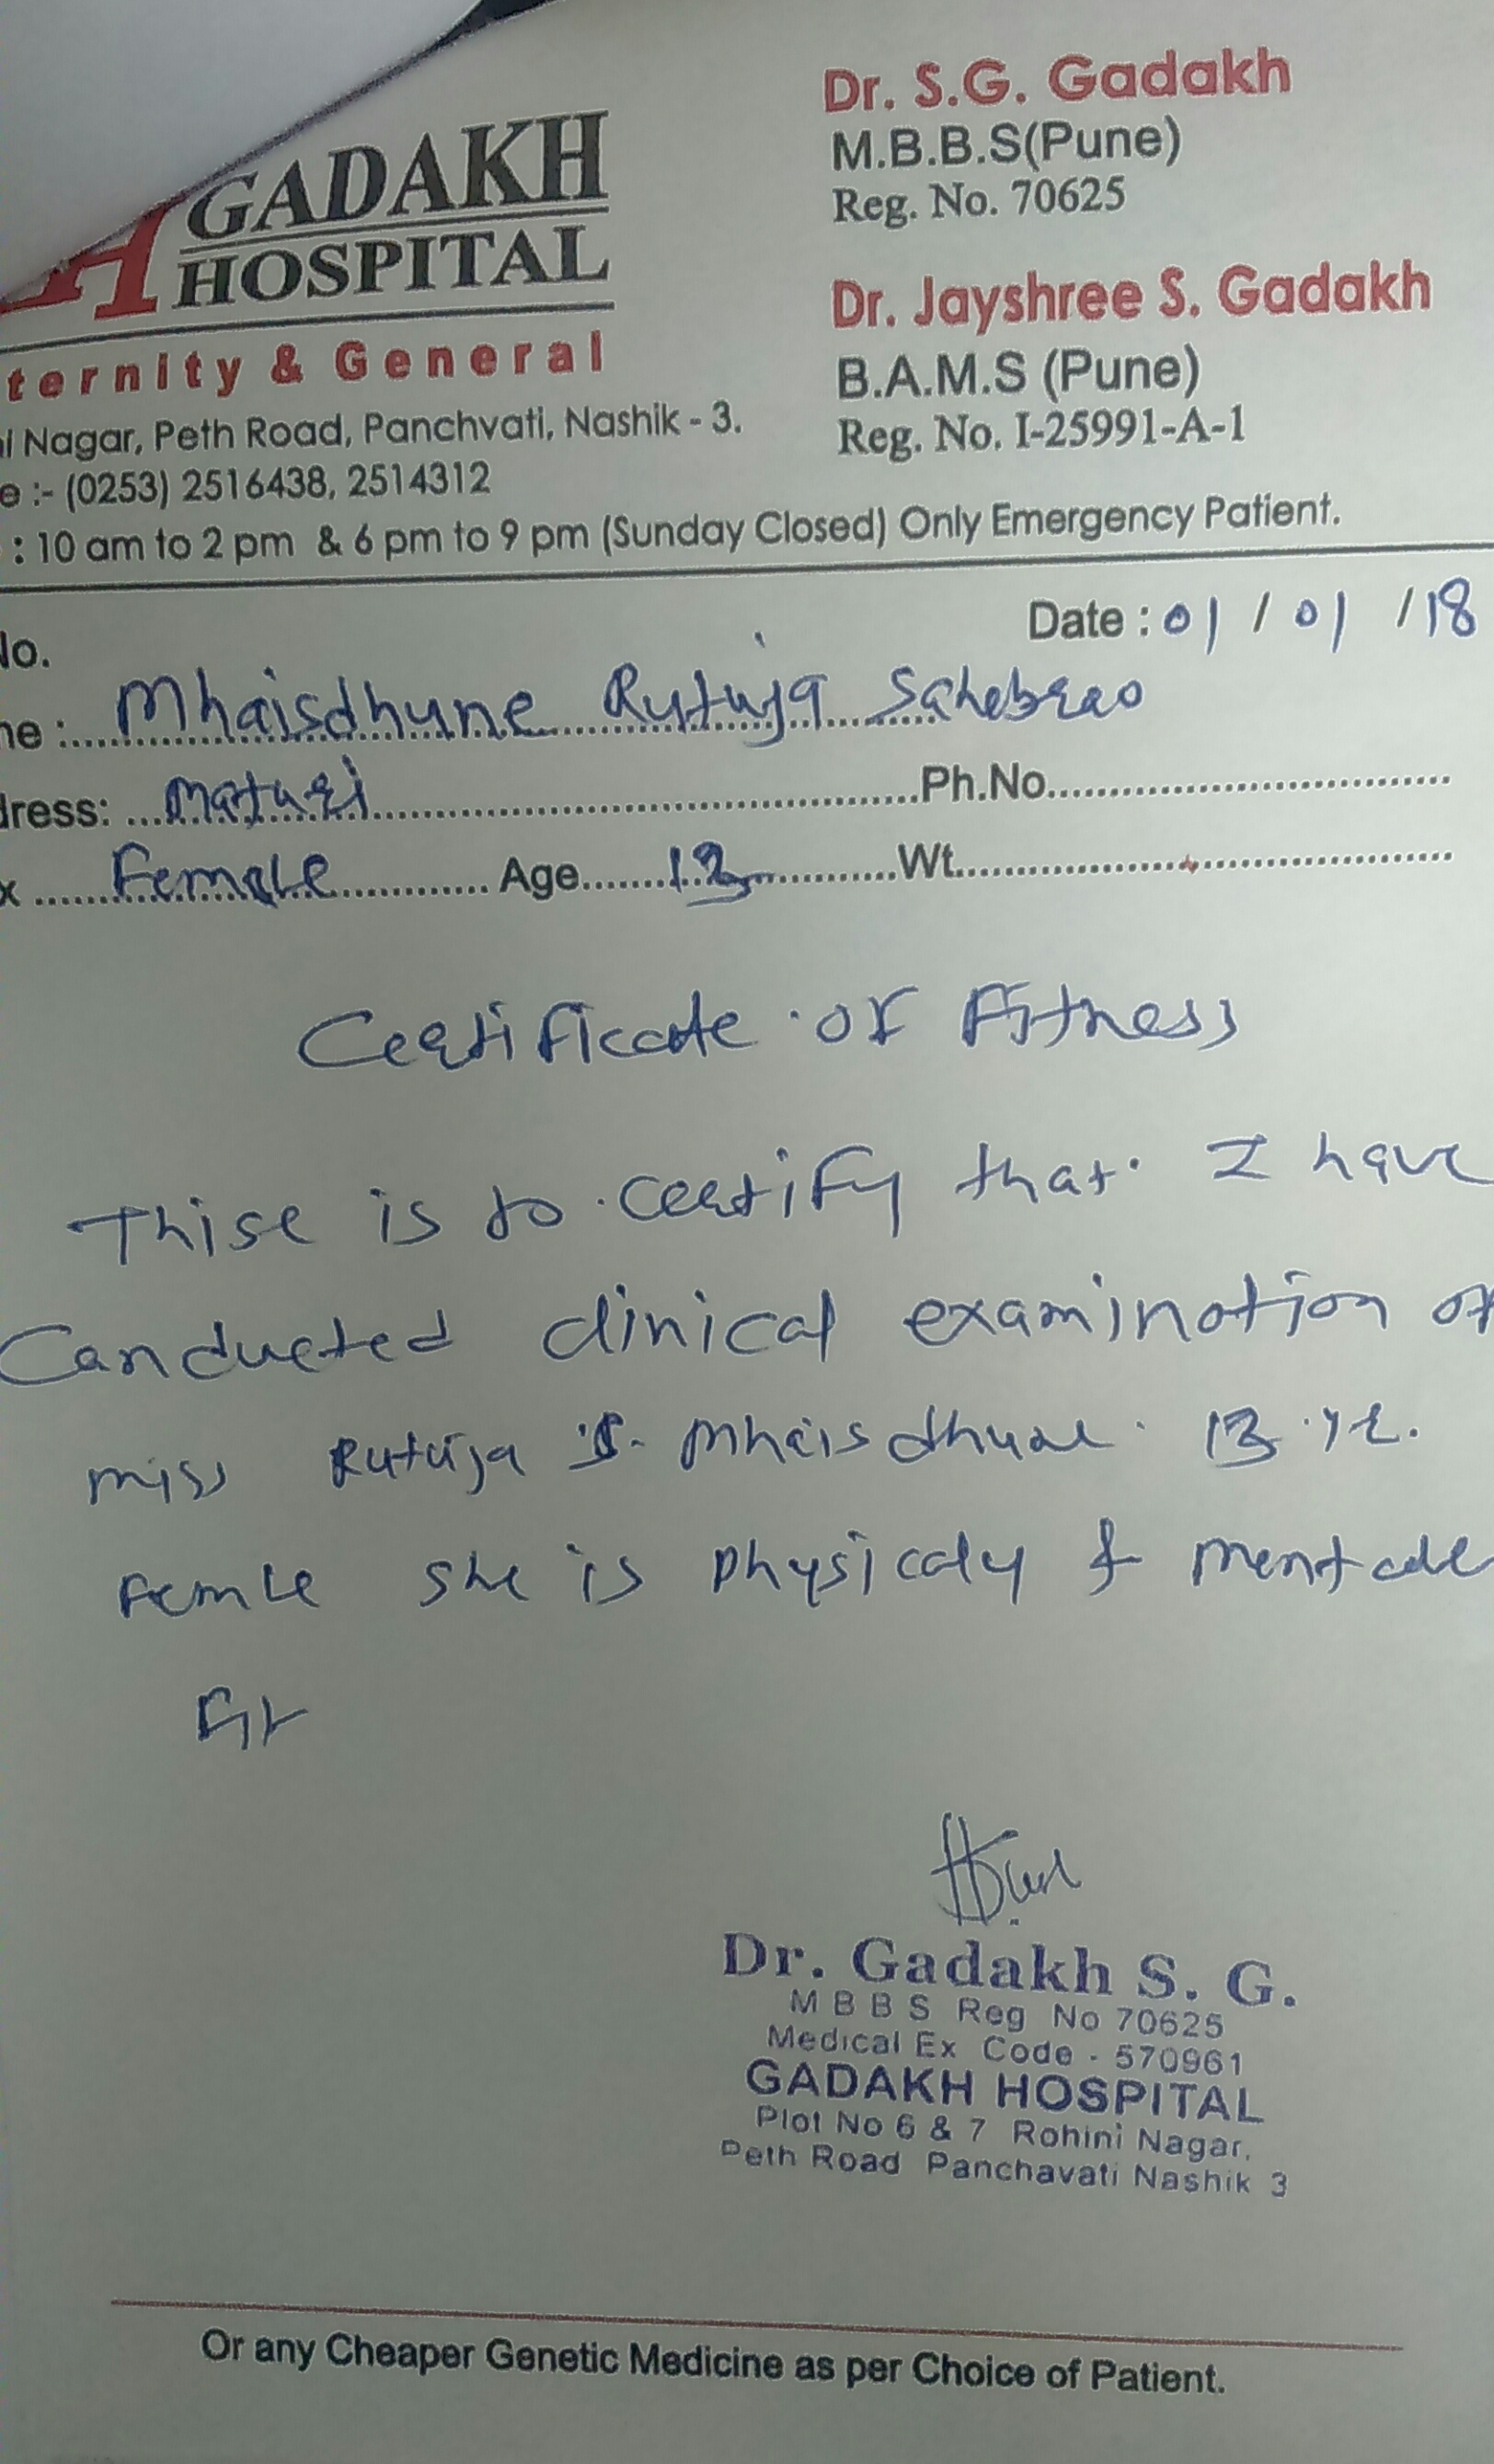 GADAKH
HOSPITAL
ternity & General
Nagar, Peth Road, Panchvati, Nashik - 3.
e :- (0253) 2516438, 2514312
: 10 am to 2 pm & 6 pm to 9 pm (Sunday Closed) Only Emergency Patient.
Dr. S.G. Gadakh
M.B.B.S(Pune)
Reg. No. 70625
Dr. Jayshree S. Gadakh
B.A.M.S (Pune)
Reg. No. I-25991-A-1
No. Date : 01 / 01 / 18
ne : Mhaisdhune Rutuja Sahebrao
dress: Maturi Ph.No.
x Female Age 13 Wt.
Certificate of Fitness
Thise is to certify that I have
Conducted clinical examination of
miss Rutuja S. Mhaisdhune 13 yr.
Femle she is physicaly & mentale
Fit
Dr. Gadakh S. G.
M B B S Reg No 70625
Medical Ex Code - 570961
GADAKH HOSPITAL
Plot No 6 & 7 Rohini Nagar,
Peth Road Panchavati Nashik 3
Or any Cheaper Genetic Medicine as per Choice of Patient.